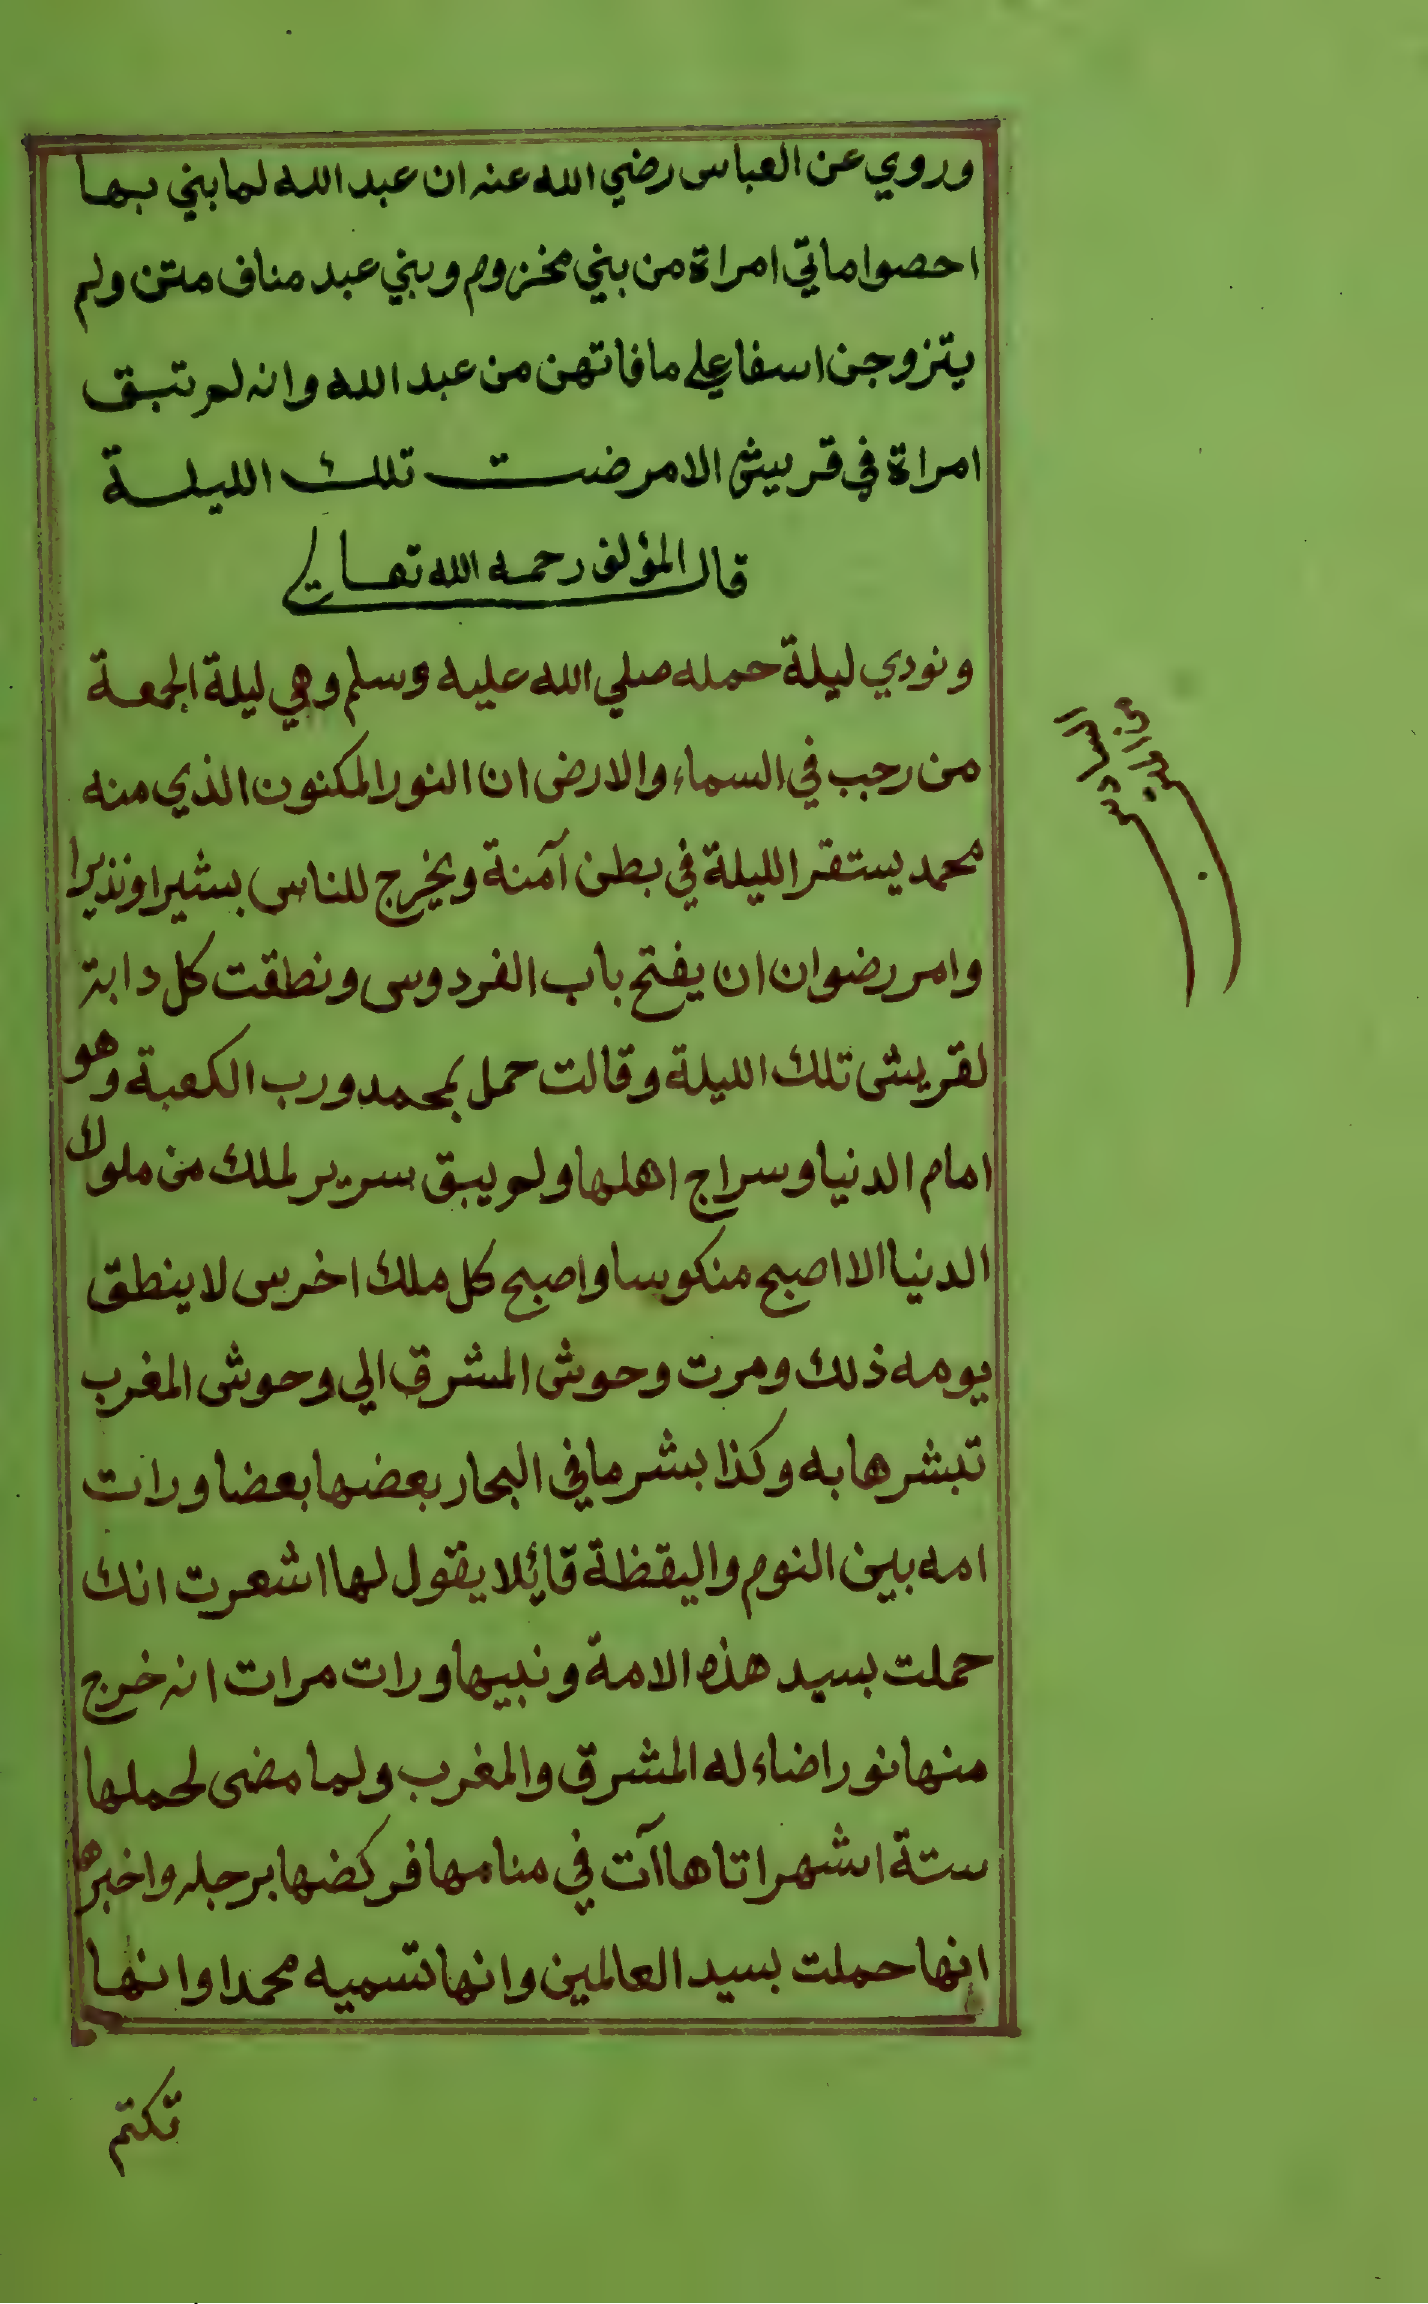 وروي عن العباس رضي الله عنه ان عبد الله لما بني بها
احصوا مايتي امراة من بني مخزوم وبني عبد مناف متن ولم
يتزوجن اسفا علي ما فاتهن من عبد الله وانه لم تبق
امراة في قريش الا مرضت تلك الليلة
قال المؤلف رحمه الله تعالي
ونودي ليلة حمله صلي الله عليه وسلم وهي ليلة الجمعة
من رجب في السماء والارض ان النور المكنون الذي منه
محمد يستقر الليلة في بطن آمنة ويخرج للناس بشيرا ونذيرا
وامر رضوان ان يفتح باب الفردوس ونطقت كل دابة
لقريش تلك الليلة وقالت حمل بمحمد ورب الكعبة وهو
امام الدنيا وسراج اهلها ولم يبق سرير لملك من ملوك
الدنيا الا اصبح منكوسا واصبح كل ملك اخرس لا ينطق
يومه ذلك ومرت وحوش المشرق الي وحوش المغرب
تبشرها به وكذا بشر ما في البحار بعضها بعضا ورات
امه بين النوم واليقظة قائلا يقول لها اشعرت انك
حملت بسيد هذه الامة ونبيها ورات مرات انه خرج
منها نور اضاء له المشرق والمغرب ولما مضى لحملها
ستة اشهر اتاها آت في منامها فركضها برجله واخبرها
انها حملت بسيد العالمين وانها تسميه محمدا وانها
تكتم
السادس